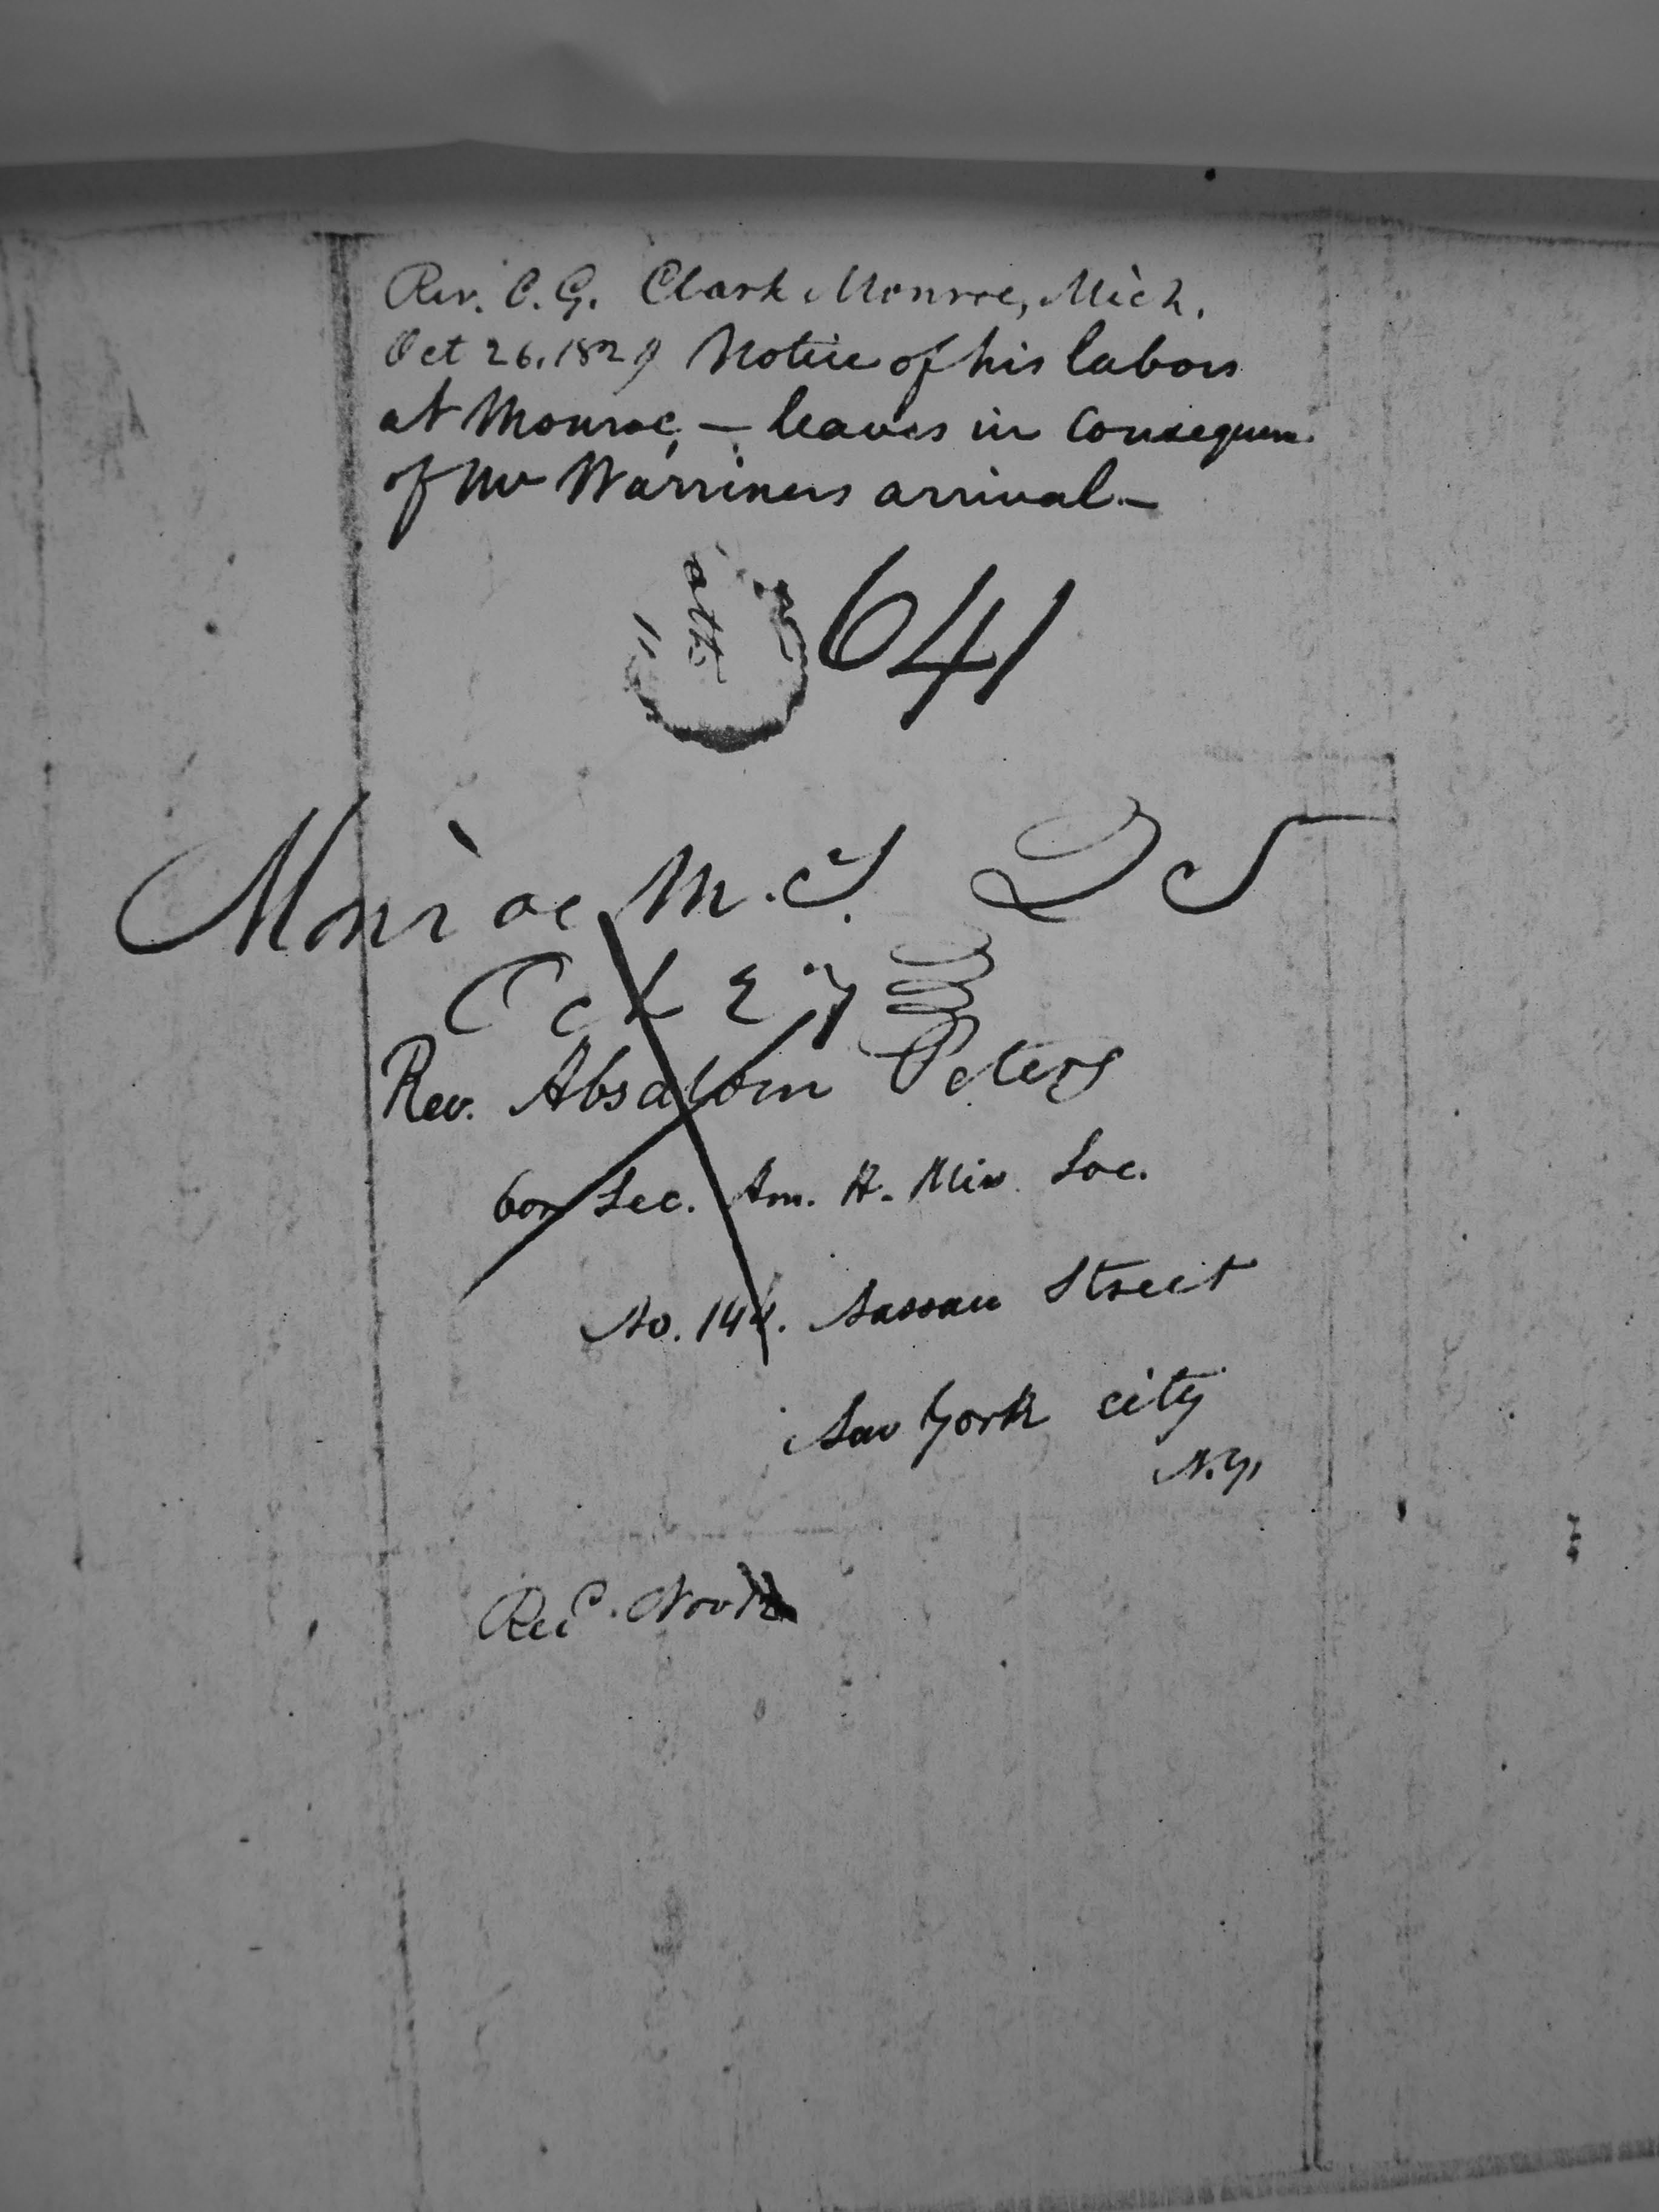 Rev. C. G. Clark Monroe, Mich.
Oct 26. 1829 Notice of his labors
at Monroe, — leaves in consequen
of Mr Warriners arrival —
641
Monroe M. T. 25
Oct 27
Rev. Absalom Peters
Cor Sec. Am. H. Miss. Soc.
No. 144. Nassau Street
New York city
N.Y.
Recd. Nov